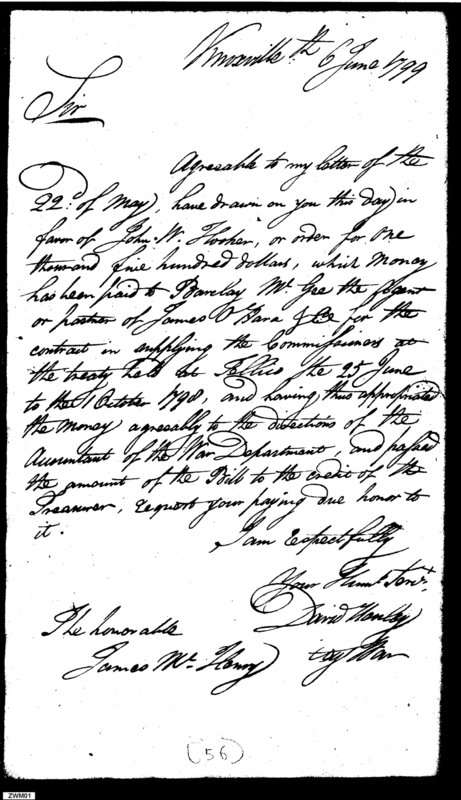 Knoxville th 6 June 1799
Sir
Agreeable to my letter of the
22d. of May, have drawn on you this day in
favor of John W. Hooker, or order for One
thousand five hundred dollars, which Money
has been paid to Barclay Mc. Gee the Agent
or partner of James O Hara & Co for the
contract in supplying the Commissioners at
the treaty held at Tellico the 25 June
to the 1 October 1798, and having thus appropriated
the Money agreeably to the directions of the
Accountant of the War Department, and passed
the amount of the Bill to the credit of the
Treasurer, request your paying due honor to
it.
I am Respectfully
Your Humb. Servt.
David Henley
Agt War
The honorable
James Mc. Henry
(56)
ZWM01